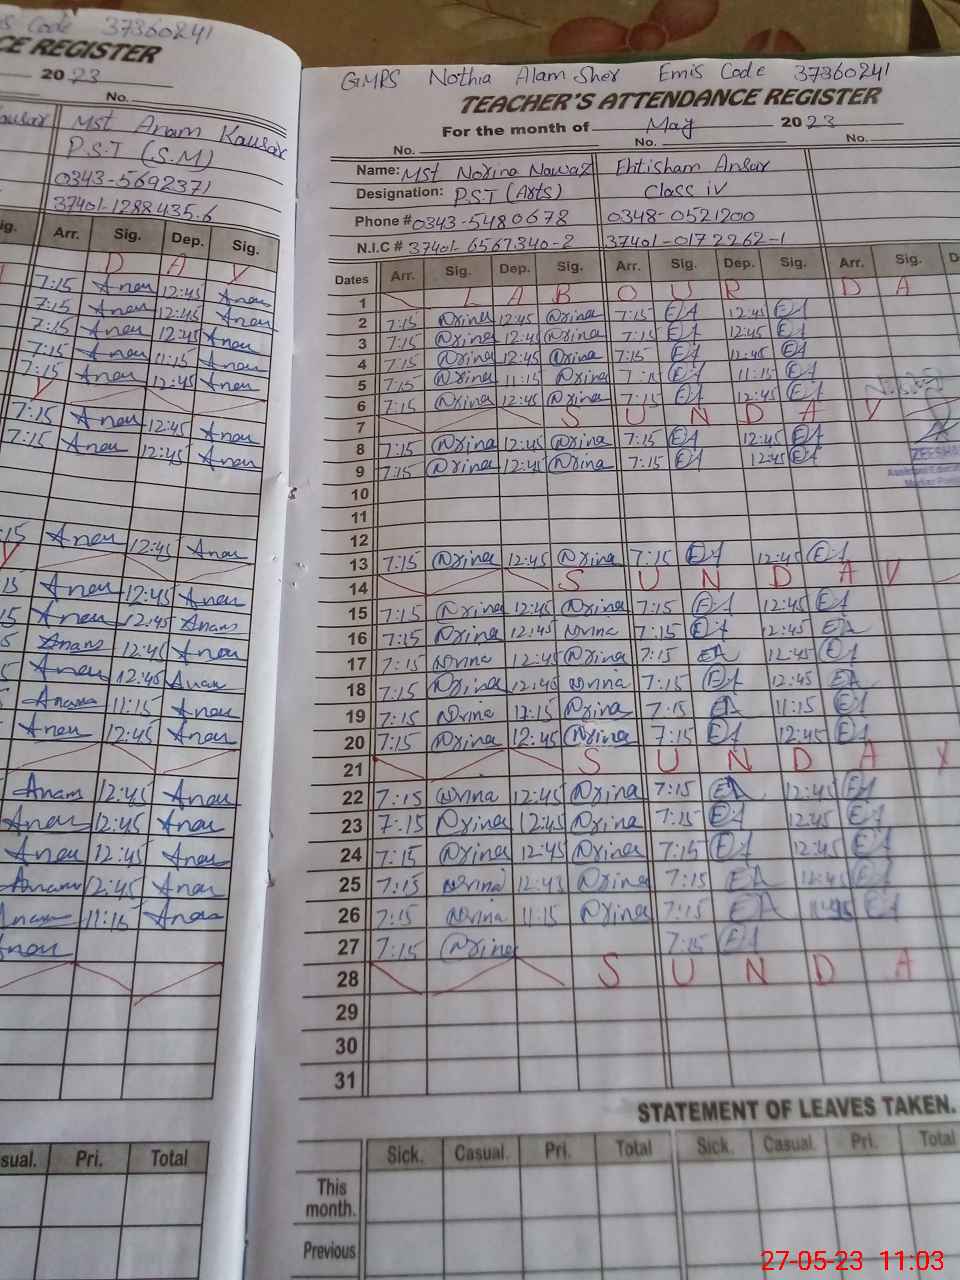 s Code 37360241
CE REGISTER
2023
No.
Kausar Mst Anam Kausar
P.S.T (S.M)
0343-5692371
37401-1288435-6
ig. Arr. Sig. Dep. Sig.
D A Y
7:15 Anam 12:45 Anam
7:15 Anam 12:45 Anam
7:15 Anam 12:45 Anam
7:15 Anam 11:15 Anam
7:15 Anam 12:45 Anam
Y
7:15 Anam 12:45 Anam
7:15 Anam 12:45 Anam
:15 Anam 12:45 Anam
Y
15 Anam 12:45 Anam
15 Anam 12:45 Anam
5 Anam 12:45 Anam
5 Anam 12:45 Anam
Anam 11:15 Anam
Anam 12:45 Anam
Anam 12:45 Anam
Anam 12:45 Anam
Anam 12:45 Anam
Anam 12:45 Anam
Anam 11:15 Anam
Anam
sual. Pri. Total
GMPS Nothia Alam Sher Emis Code 37360241
TEACHER'S ATTENDANCE REGISTER
For the month of May 2023
No. No. No.
Name: Mst Norina Nawaz Ehtisham Ansar
Designation: P.S.T (Arts) Class iv
Phone # 0343-5480678 0348-0521200
N.I.C # 37401-6567340-2 37401-0172262-1
Dates Arr. Sig. Dep. Sig. Arr. Sig. Dep. Sig. Arr. Sig. D
1 L A B O U R D A
2 7:15 Norina 12:45 Norina 7:15 EA 12:45 EA
3 7:15 Norina 12:45 Norina 7:15 EA 12:45 EA
4 7:15 Norina 12:45 Norina 7:15 EA 12:45 EA
5 7:15 Norina 11:15 Norina 7:15 EA 11:15 EA
6 7:15 Norina 12:45 Norina 7:15 EA 12:45 EA
7 S U N D A Y
8 7:15 Norina 12:45 Norina 7:15 EA 12:45 EA
9 7:15 Norina 12:45 Norina 7:15 EA 12:45 EA
10
11
12
13 7:15 Norina 12:45 Norina 7:15 EA 12:45 EA
14 S U N D A Y
15 7:15 Norina 12:45 Norina 7:15 EA 12:45 EA
16 7:15 Norina 12:45 Norina 7:15 EA 12:45 EA
17 7:15 Norina 12:45 Norina 7:15 EA 12:45 EA
18 7:15 Norina 12:45 Norina 7:15 EA 12:45 EA
19 7:15 Norina 11:15 Norina 7:15 EA 11:15 EA
20 7:15 Norina 12:45 Norina 7:15 EA 12:45 EA
21 S U N D A Y
22 7:15 Norina 12:45 Norina 7:15 EA 12:45 EA
23 7:15 Norina 12:45 Norina 7:15 EA 12:45 EA
24 7:15 Norina 12:45 Norina 7:15 EA 12:45 EA
25 7:15 Norina 12:45 Norina 7:15 EA 12:45 EA
26 7:15 Norina 11:15 Norina 7:15 EA EA
27 7:15 Norina 7:15 EA
28 S U N D A
29
30
31
STATEMENT OF LEAVES TAKEN.
Sick. Casual. Pri. Total Sick. Casual. Pri. Total
This month.
Previous
27-05-23 11:03